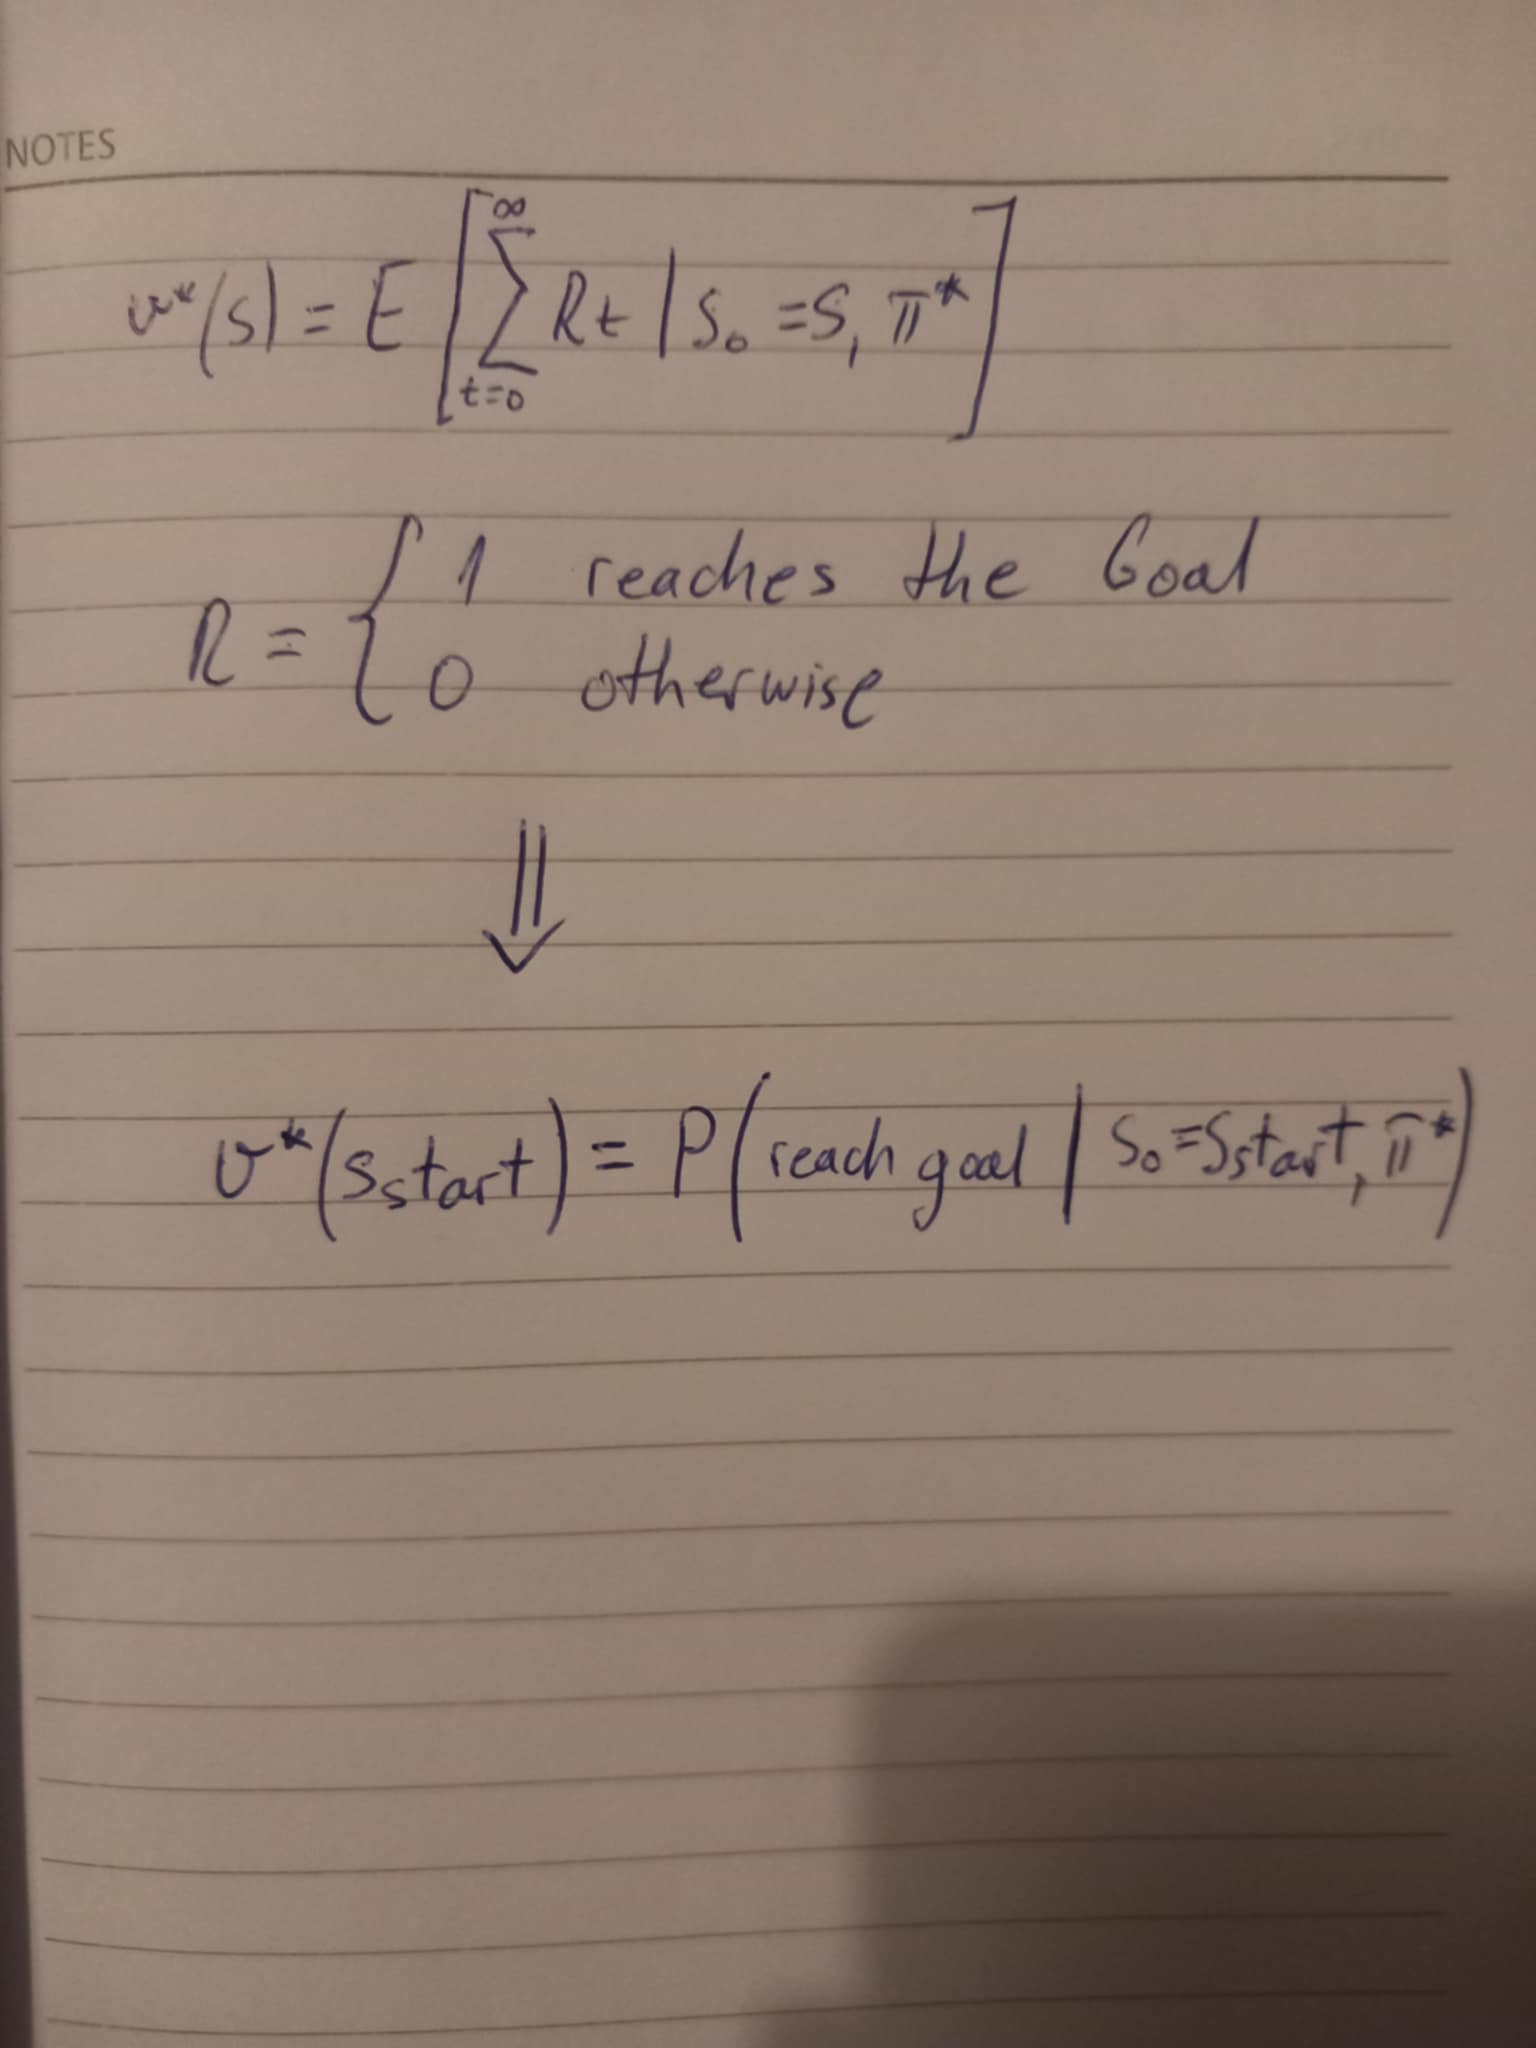 NOTES
v*(s) = E [ ∞ ∑ t=0 Rt | S₀ = S, π* ]
R = { 1 reaches the Goal
0 otherwise
⇓
v*(Sstart) = P(reach goal | S₀ = Sstart, π*)